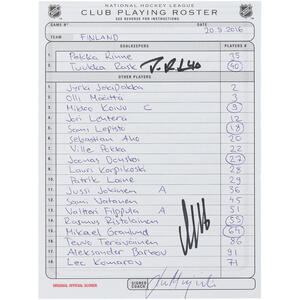 NATIONAL HOCKEY LEAGUE
CLUB PLAYING ROSTER
SEE REVERSE FOR INSTRUCTIONS
GAME # DATE 20.9.2016
TEAM FINLAND
GOALKEEPERS PLAYERS #
1 Pekka Rinne 35
2 Tuukka Rask 40
OTHER PLAYERS
1 Jyrki Jokipakka 2
2 Olli Määttä 3
3 Mikko Koivu C 9
4 Jori Lehterä 12
5 Sami Lepistö 18
6 Sebastian Aho 20
7 Ville Pokka 22
8 Joonas Donskoi 27
9 Lauri Korpikoski 28
10 Patrik Laine 29
11 Jussi Jokinen A 36
12 Sami Vatanen 45
13 Valtteri Filppula A 51
14 Rasmus Ristolainen 55
15 Mikael Granlund 64
16 Teuvo Teräväinen 86
17 Aleksander Barkov 91
18 Leo Komarov 71
ORIGINAL: OFFICIAL SCORER
SIGNED
COACH